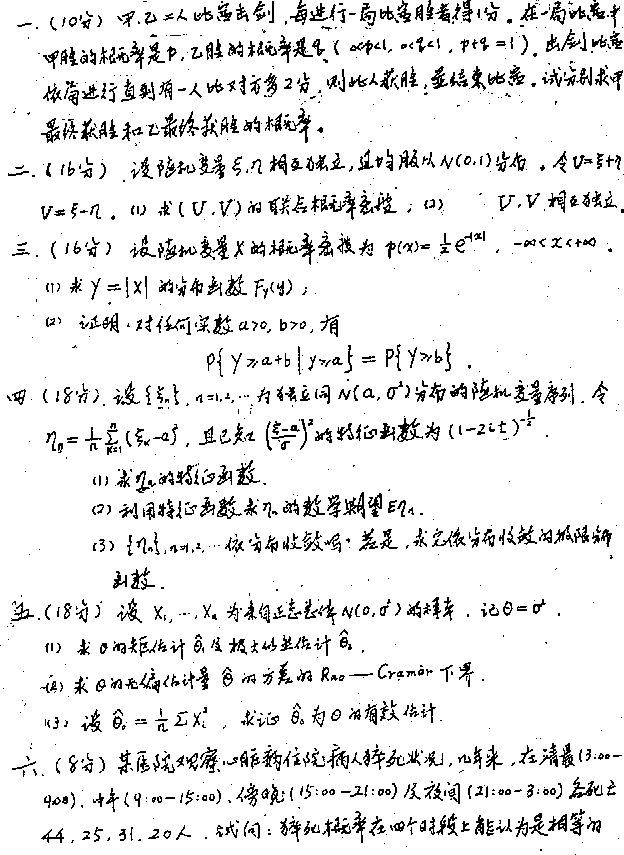 一.(10分) 甲、乙二人比赛击剑,每进行一局比赛胜者得1分。在一局比赛中
甲胜的概率是p,乙胜的概率是q(0<p<1, 0<q<1, p+q=1)。击剑比赛
依局进行直到有一人比对方多2分,则此人获胜,并结束比赛。试分别求甲
最终获胜和乙最终获胜的概率。
二.(16分) 设随机变量ξ,η相互独立,且均服从N(0,1)分布。令U=ξ+η
V=ξ-η。(1) 求(U,V)的联合概率密度;(2) U,V相互独立.
三.(16分) 设随机变量X的概率密度为 p(x)=½e^{-|x|}, -∞<x<+∞。
(1) 求Y=|X|的分布函数F_Y(y);
(2) 证明:对任何实数a>0, b>0, 有
P{Y≥a+b|Y≥a}=P{Y≥b}.
四.(18分) 设{ξₙ}, n=1,2,…为独立同N(a,σ²)分布的随机变量序列,令
ηₙ=1/n Σ_{k=1}^{n}(ξₖ-a)², 且已知((ξ-a)/σ)²的特征函数为(1-2it)^{-1/2}.
(1) 求ηₙ的特征函数.
(2) 利用特征函数求ηₙ的数学期望Eηₙ.
(3) {ηₙ}, n=1,2,…依分布收敛吗?若是,求它依分布收敛的极限分布
函数.
五.(18分) 设X₁,…,Xₙ为来自正态总体N(0,σ²)的样本,记θ=σ².
(1) 求θ的矩估计θ̂₁及极大似然估计θ̂₂.
(2) 求θ的无偏估计量θ̂的方差的Rao—Cramér下界.
(3) 设θ̂₀=1/n ΣXᵢ², 求证θ̂₀为θ的有效估计.
六.(8分) 某医院观察心脏病住院病人猝死状况,几年来,在清晨(3:00—
9:00)、中午(9:00-15:00)、傍晚(15:00-21:00)及夜间(21:00-3:00)各死亡
44, 25, 31, 20人.试问:猝死概率在四个时段上能认为是相等的